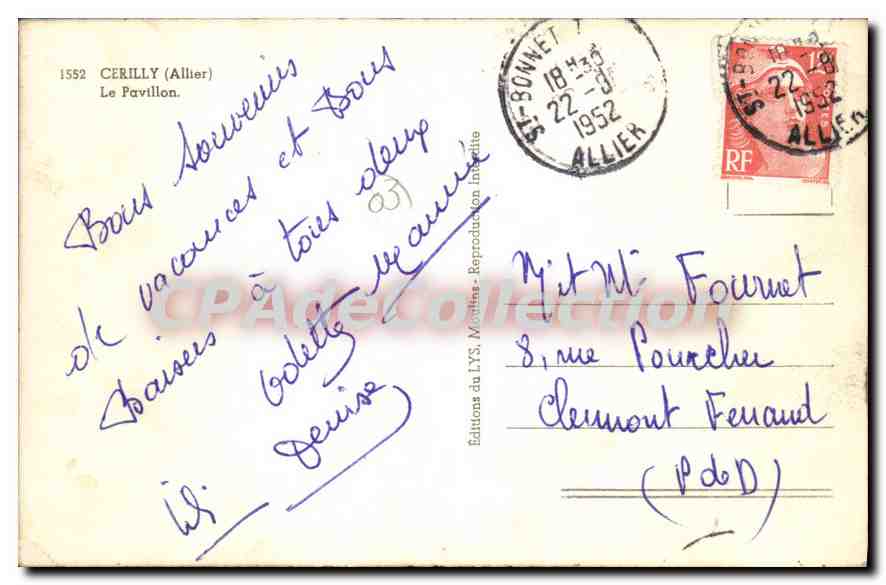 1552 CERILLY (Allier)
Le Pavillon.
Bons Souvenirs
de vacances et Bons
Baisers à tous deux
Odette
Denise
Lili
Éditions du LYS, Moulins - Reproduction Interdite
ST-BONNET
18H30
22-8
1952
ALLIER
ST-BO
18H
22-8
1952
ALLIER
RF
CPAdeCollection
Mr et Me Fournet
8, rue Pourcher
Clermont Ferrand
(P de D)